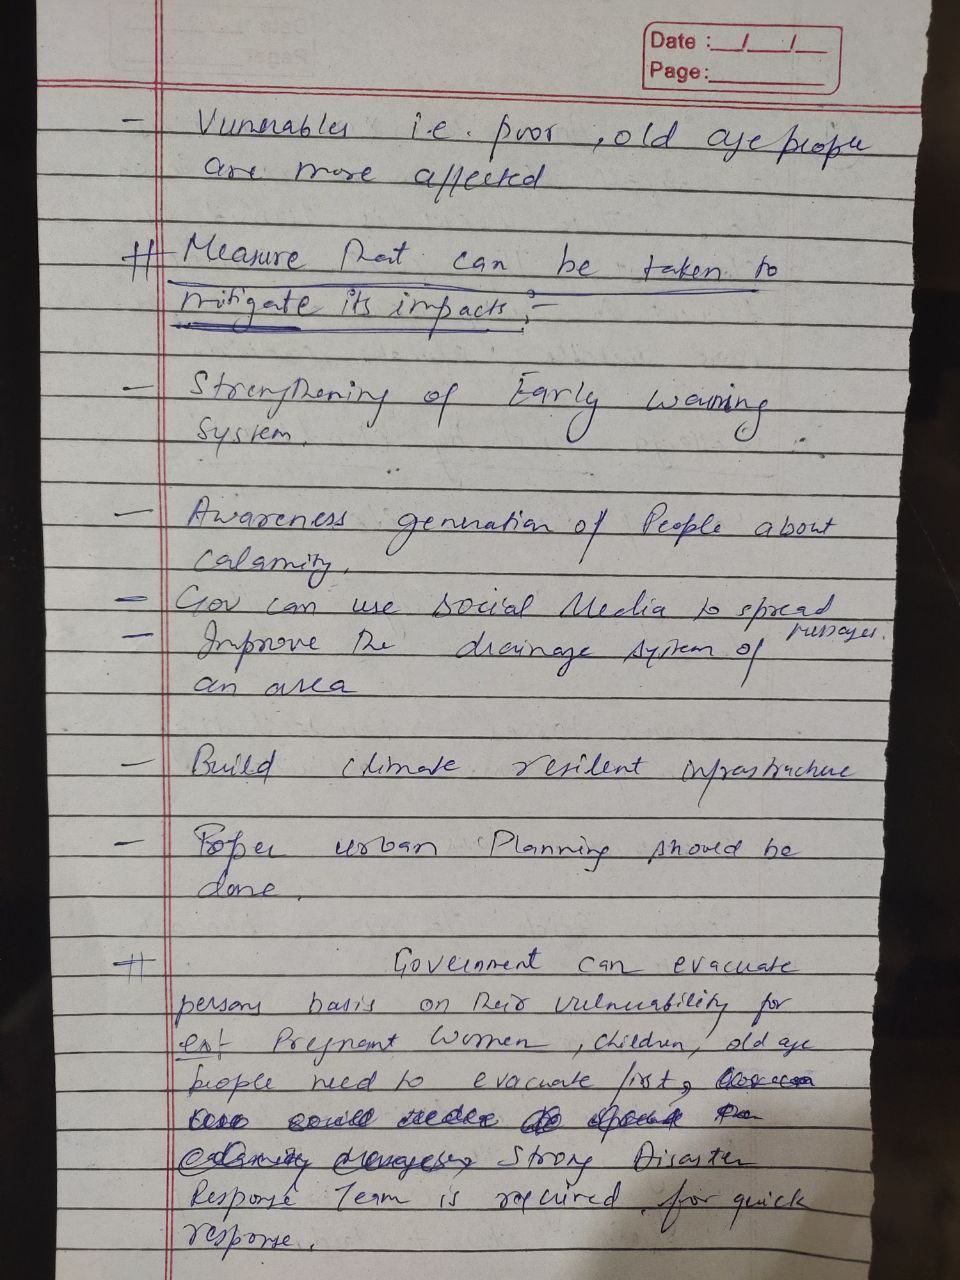 Date : __/__/__
Page: ________
- Vunerables i.e. poor , old age people
are more affected
# Measure that can be taken to
mitigate its impacts :-
- Strengthening of Early warning
System.
- Awareness generation of People about
calamity.
- Gov can use social Media to spread
messages.
- Improve the drainage system of
an area
- Build climate resilent infrastructure
- Proper urban Planning should be
done.
# Government can evacuate
persons basis on their vulnerability for
ext Pregnant Women , Children, old age
people need to evacuate first,
Strong Disaster
Response Team is required for quick
response.